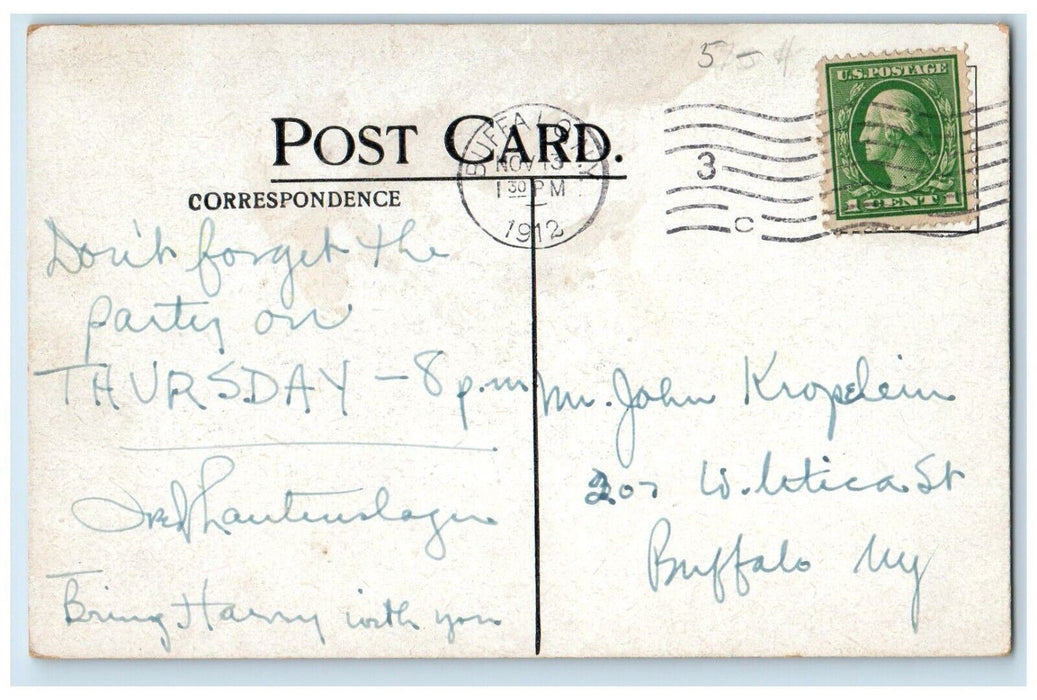 575- #
POST CARD.
CORRESPONDENCE
BUFFALO, N.Y.
NOV 13
1 30 PM
1912
3
C
U.S. POSTAGE
1 CENT 1
Don't forget the
party on
THURSDAY - 8 p.m
Fred Lautenslager
Bring Harry with you
Mr. John Kropelein
207 W. Utica St
Buffalo Ny